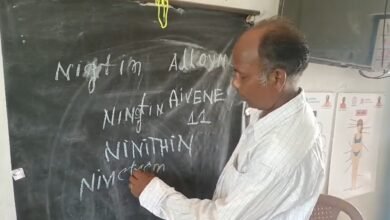 Nigtim Alloyn
NINgtin AivENE
11
NINiTHiN
NiN